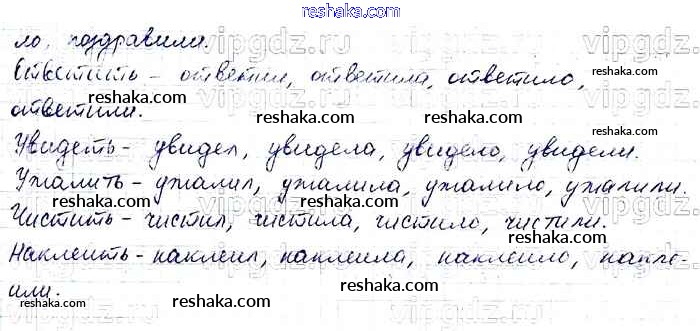 reshaka.com
ло, поздравили.
Ответить – ответил, ответила, ответило,
ответили.
Увидеть – увидел, увидела, увидело, увидели.
Ужалить – ужалил, ужалила, ужалило, ужалили.
Чистить – чистил, чистила, чистило, чистили.
Наклеить – наклеил, наклеила, наклеило, накле-
или.
reshaka.com
vipgdz.ru